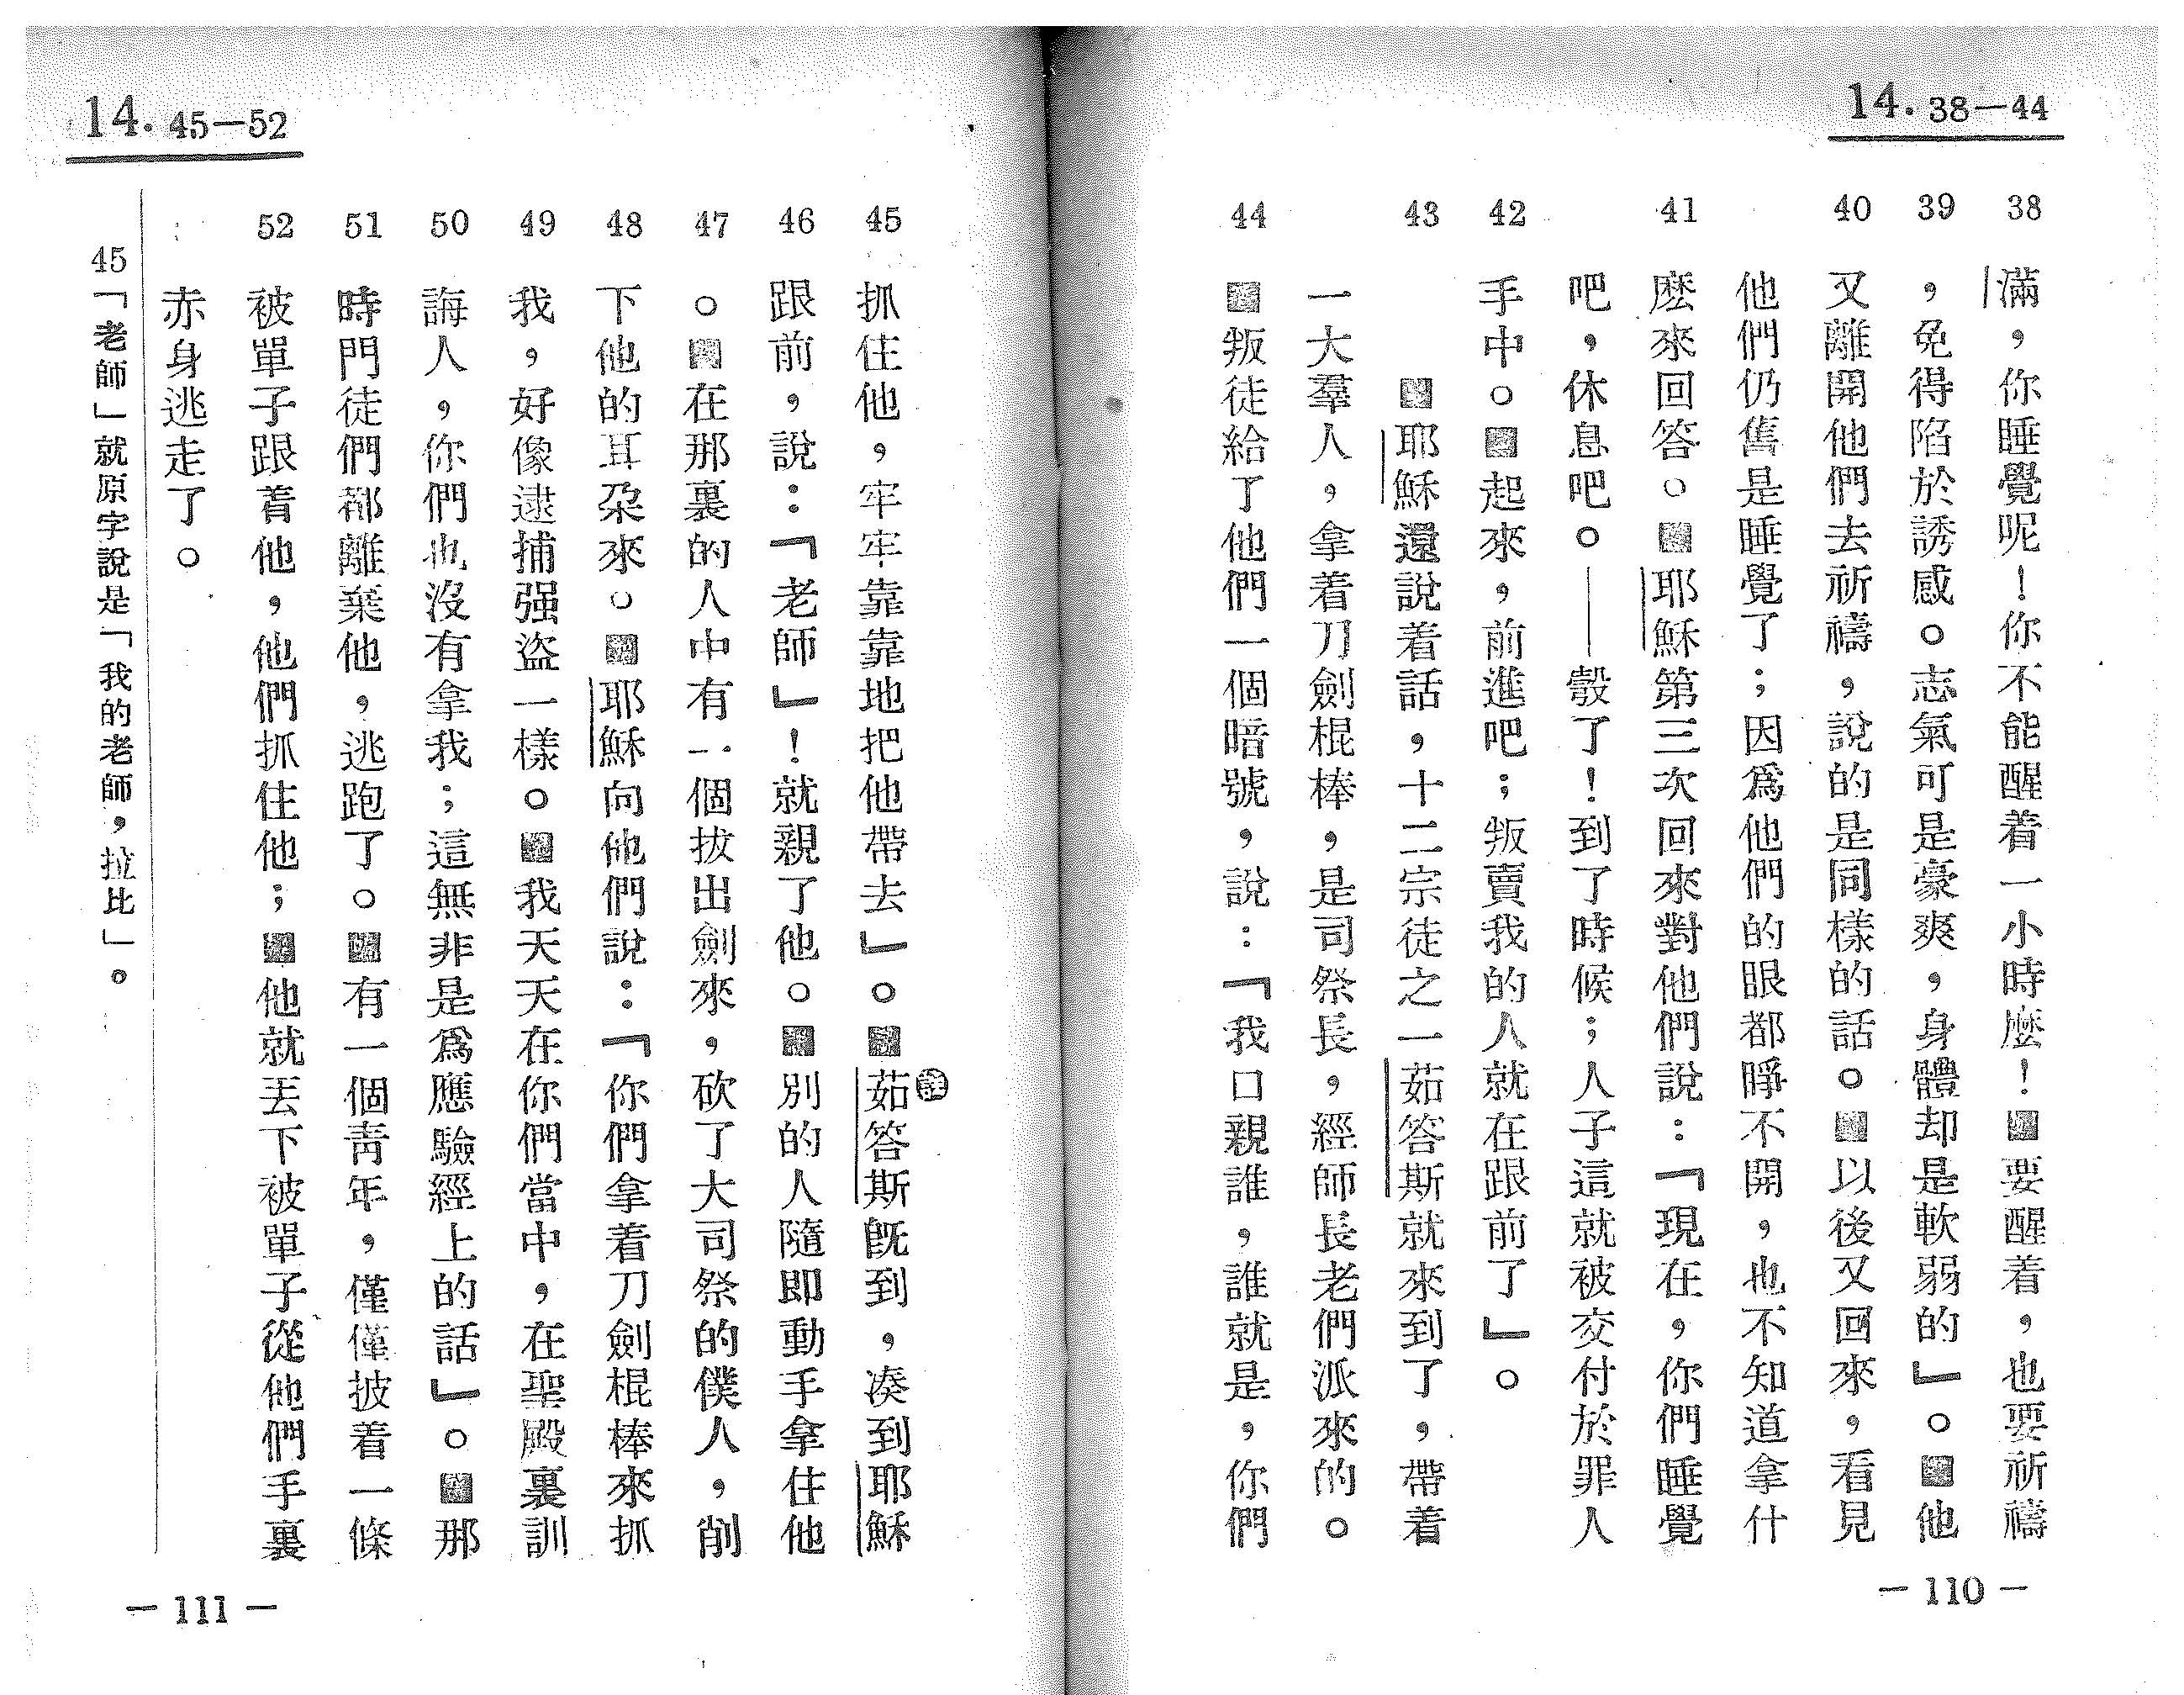 14. 38—44
38 39 40 41 42 43 44
滿，你睡覺呢！你不能醒着一小時麼！要醒着，也要祈禱
，免得陷於誘感。志氣可是豪爽，身體却是軟弱的」。他
又離開他們去祈禱，說的是同樣的話。以後又回來，看見
他們仍舊是睡覺了；因爲他們的眼都睜不開，也不知道拿什
麼來回答。耶穌第三次回來對他們說：「現在，你們睡覺
吧，休息吧。——彀了！到了時候；人子這就被交付於罪人
手中。起來，前進吧；叛賣我的人就在跟前了」。
耶穌還說着話，十二宗徒之一茹答斯就來到了，帶着
一大羣人，拿着刀劍棍棒，是司祭長，經師長老們派來的。
叛徒給了他們一個暗號，說：「我口親誰，誰就是，你們
— 110 —
14. 45—52
45 46 47 48 49 50 51 52
抓住他，牢牢靠靠地把他帶去」。茹答斯旣到，凑到耶穌
註
跟前，說：「老師」！就親了他。別的人隨即動手拿住他
。在那裏的人中有一個拔出劍來，砍了大司祭的僕人，削
下他的耳朶來。耶穌向他們說：「你們拿着刀劍棍棒來抓
我，好像逮捕强盜一樣。我天天在你們當中，在聖殿裏訓
誨人，你們也沒有拿我；這無非是爲應驗經上的話」。那
時門徒們都離棄他，逃跑了。有一個靑年，僅僅披着一條
被單子跟着他，他們抓住他；他就丟下被單子從他們手裏
赤身逃走了。
45「老師」就原字說是「我的老師，拉比」。
— 111 —